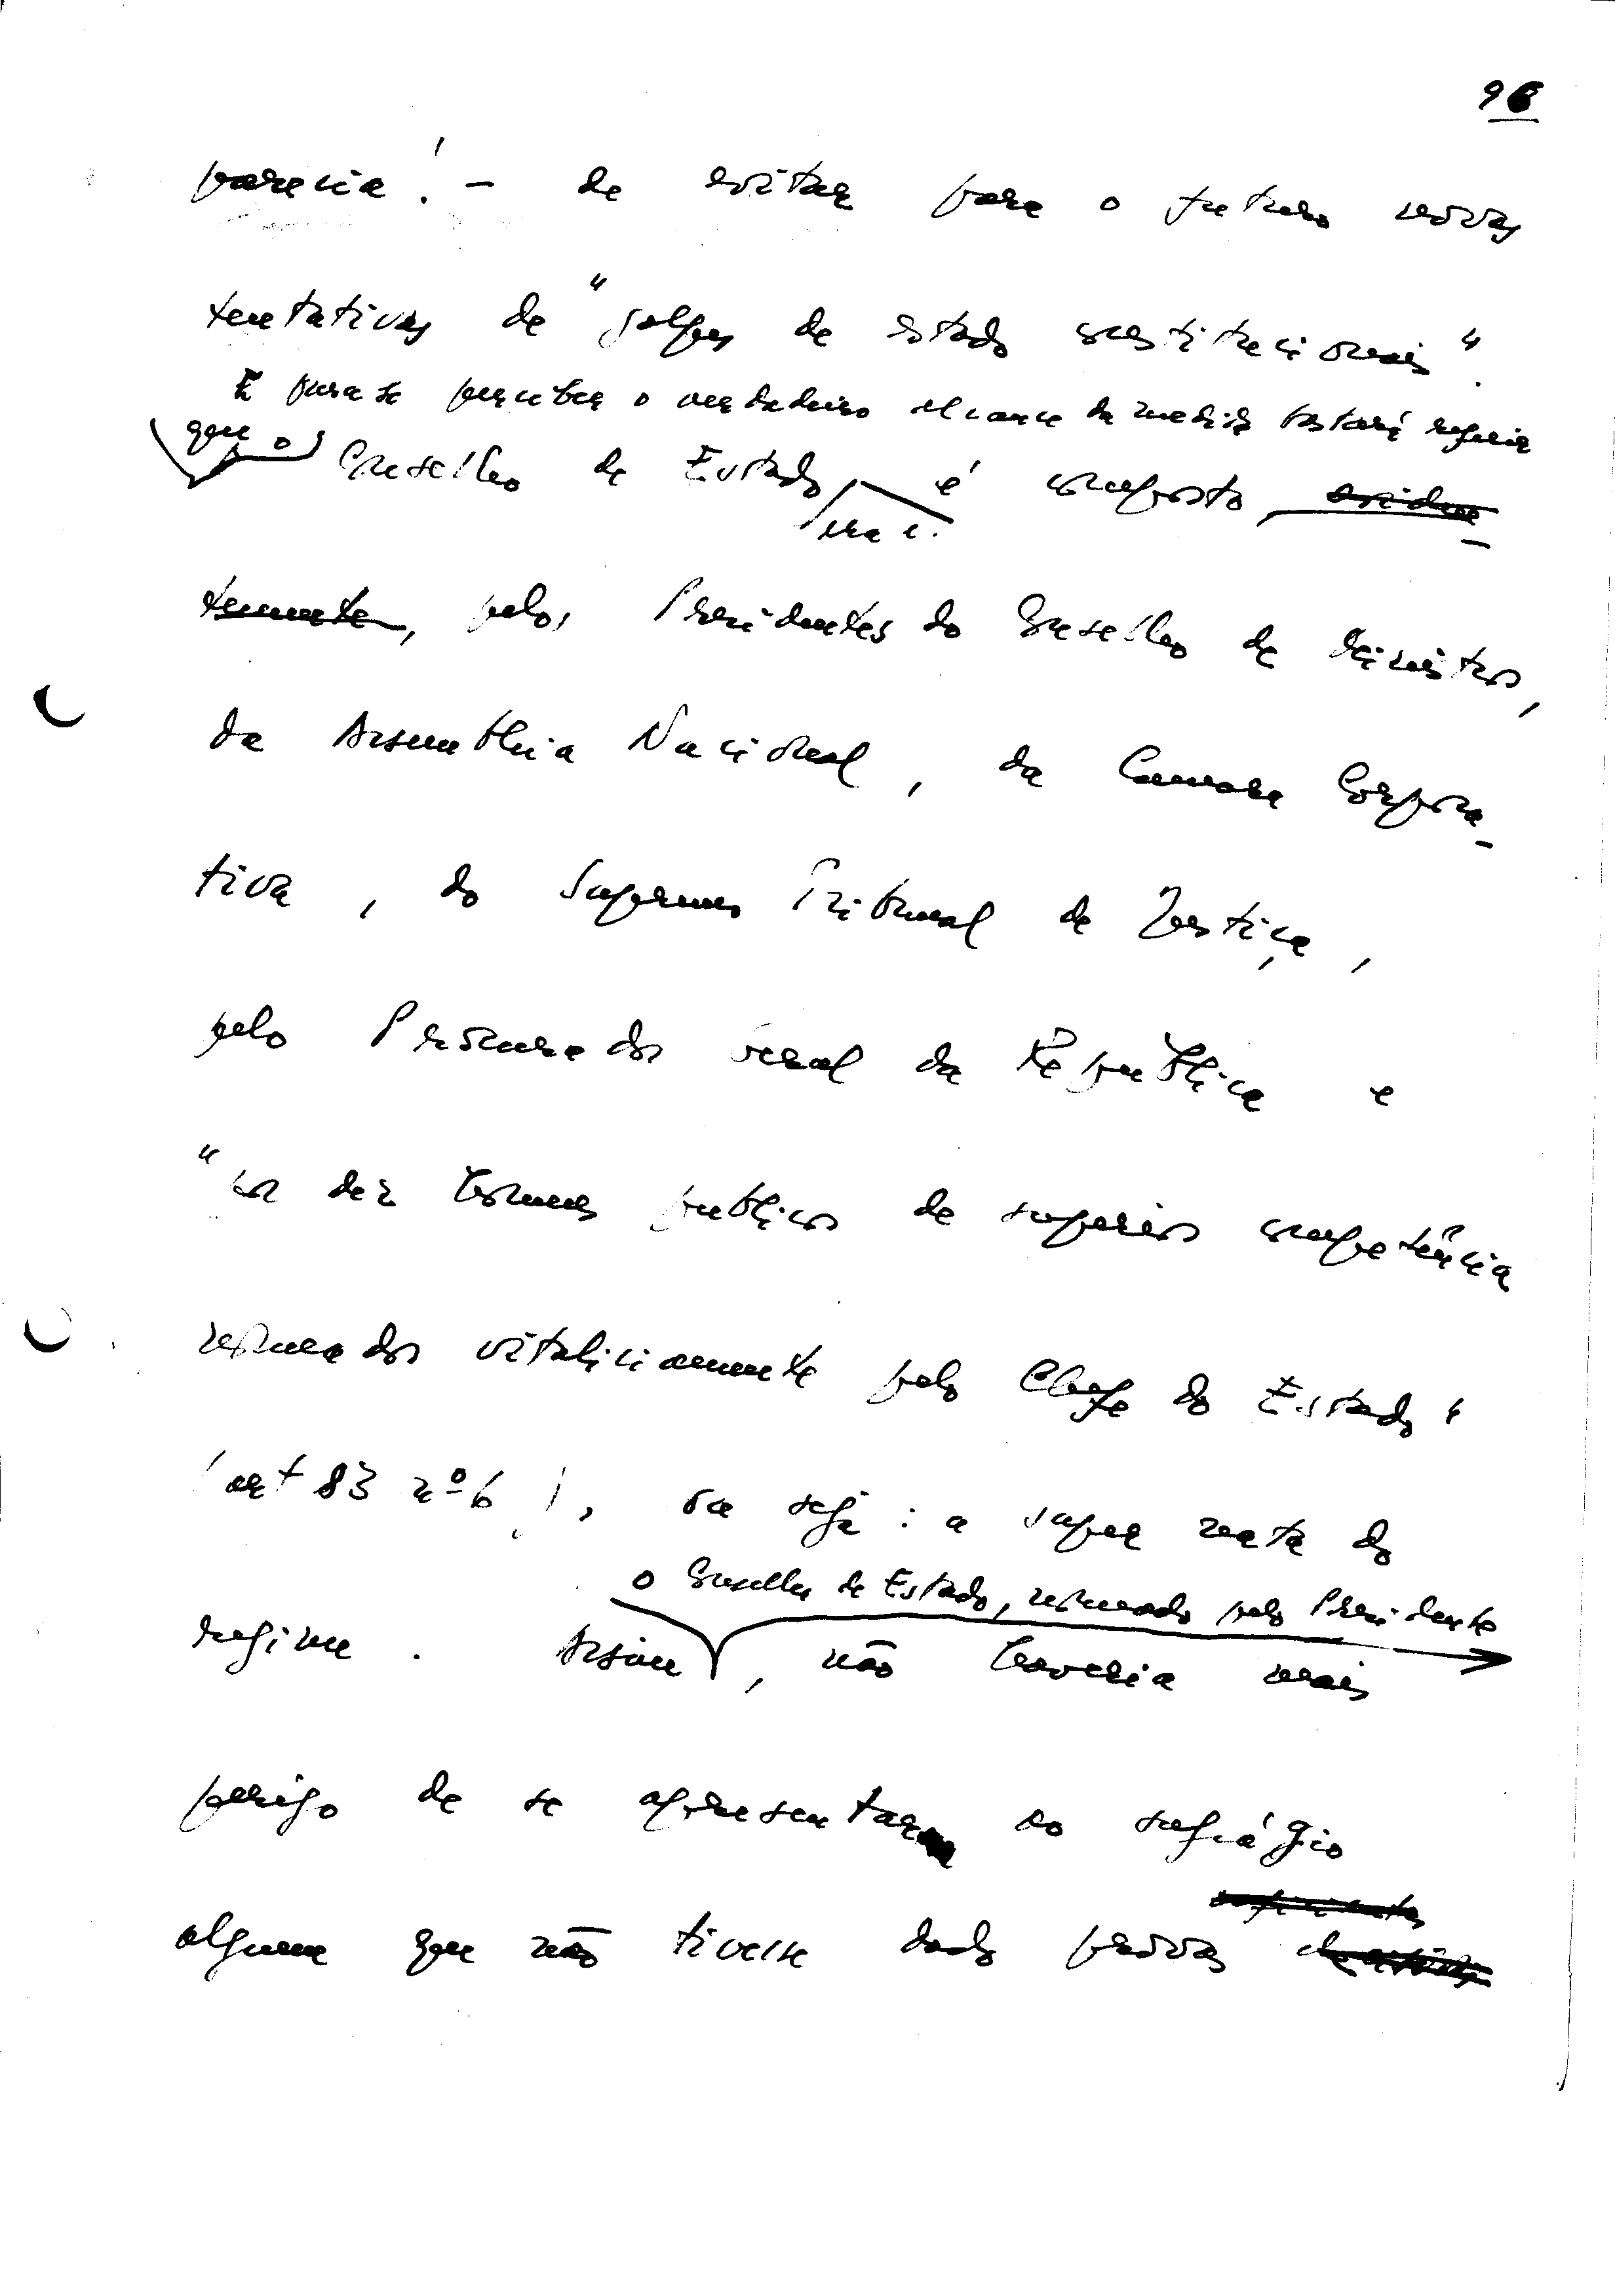 96
parecia! - de evitar para o futuro novas
tentativas de "golpes de estado constitucionais".
E para se perceber o verdadeiro alcance da medida bastará referir
que o Conselho de Estado, é composto, eviden-
temente, pelos Presidentes do Conselho de Ministros,
da Assembleia Nacional, da Camara Corpora-
tiva, do Supremo Tribunal de Justiça,
pelo Procurador Geral da República e
"por dez homens publicos de superior competência
nomeados vitaliciamente pelo Chefe do Estado"
(art 83 nº 6), ou seja: a super nata do
o Conselho de Estado, nomeado pelo Presidente
regime. Assim, não haveria mais
perigo de se apresentar ao sufrágio
alguem que não tivesse dado provas